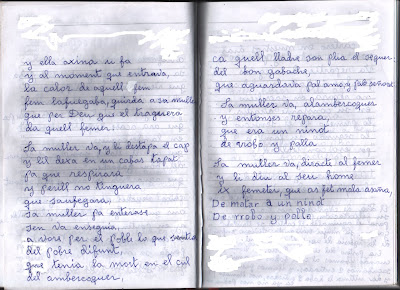 y ella axina u fa
y al moment que entrava,
la calor de aquell fem
fem lafuegaba, quirdá a sa muller
que per Deu que el traguera
da quell femer.
Sa muller va, y li destapa el cap
y lit dexa en un cabas tapat
pa que respirara
y perill no tinguera
que saufegara,
Sa muller pa enterase
sen va enseguia,
a vore per el poble lo que sentia
del pobre difunt,
que tenia la mort en el col
del ambercoquer,
ca quell lladre san plia el seguer;
del bon gabache,
que aguardava pal amo, y fals señase
Sa muller va, alambercoquer
y entonses repara,
que era un ninot
de rrobo y palla
Sa muller va, directe al femer
y li diu al seu home
Ix femeter, que as fet mala axina,
De matar a un ninot
De rrobo y palle